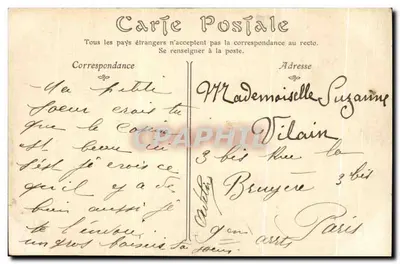 Carte Postale
Tous les pays étrangers n'acceptent pas la correspondance au recto.
Se renseigner à la poste.
Correspondance
Adresse
Ma petite
soeur crois tu
que le
est beau
je crois ce
qu'il y a de
bien aussi je
t'envoie
un gros baiser ta soeur
Mademoiselle Suzanne
Vilain
3 bis Rue la
Bruyère 3 bis
Paris
arrt
CPAPHIL